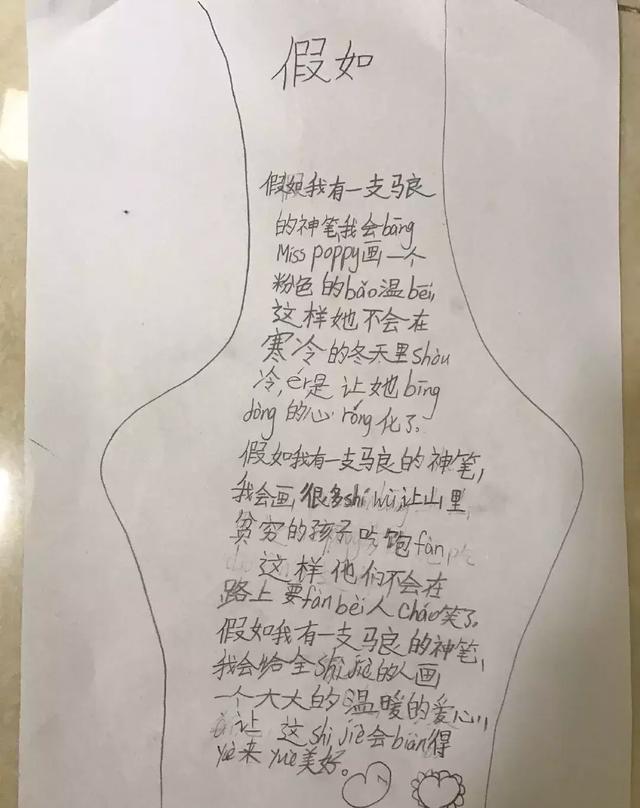 假如
假如我有一支马良
的神笔,我会bāng
Miss poppy画一个
粉色的bǎo温bēi,
这样她不会在
寒冷的冬天里shòu
冷,ér是让她bīng
dòng的心róng化了。
假如我有一支马良的神笔,
我会画很多shí wù让山里
贫穷的孩子吃饱fàn
这样他们不会在
路上要fàn bèi人cháo笑了。
假如我有一支马良的神笔,
我会给全shì jiè的人画
一个大大的温暖的爱心,
让这shì jiè会biàn得
yuè来yuè美好。